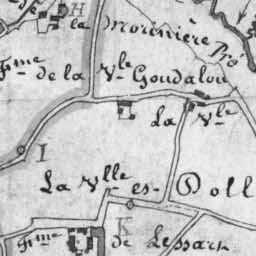 H
la Morinière
fme de la Vlle Goudalou
La Vlle
I
La Vlle es Doll
K
fme de Lessart